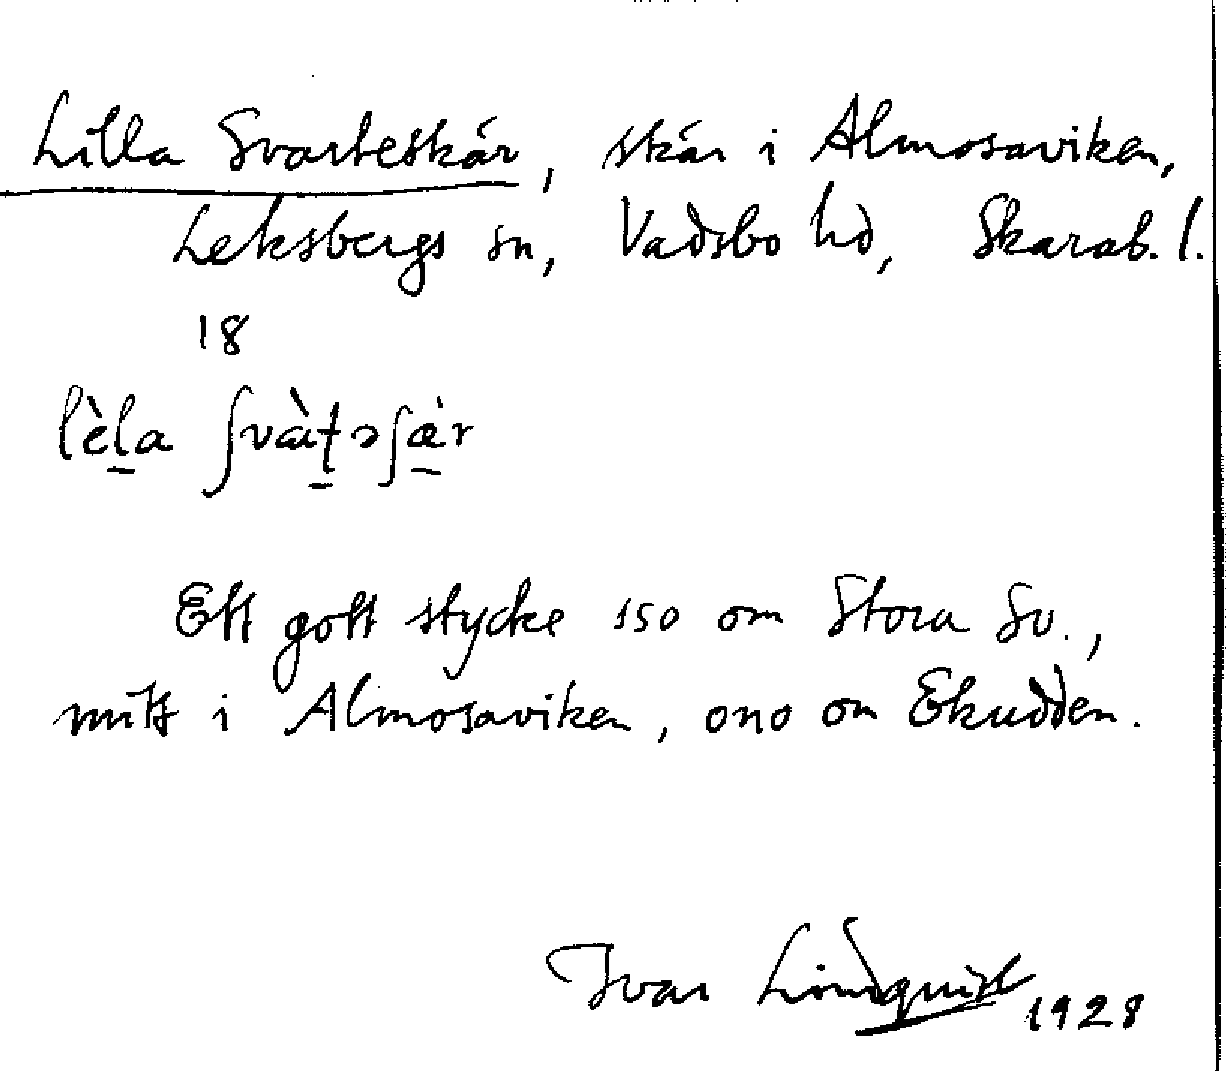 Lilla Svarteskär, skär i Almosaviken,
Leksbergs sn, Vadsbo hd, Skarab. l.
18
lèḻa ʃvàṯəʃæ̠̀r
Ett gott stycke sso om Stora Sv.,
mitt i Almosaviken, ono om Ekudden.
Ivar Lindquist
1928